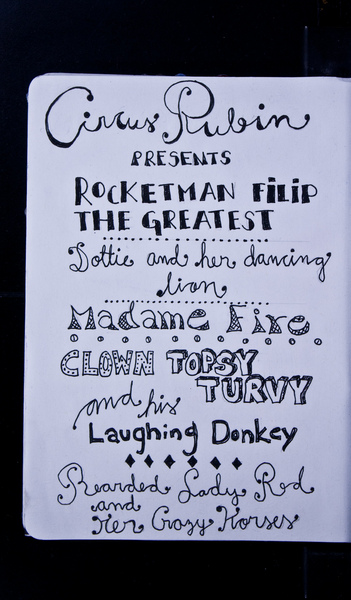 Circus Rubin
PRESENTS
ROCKETMAN FILIP
THE GREATEST
Dottie and her dancing
lion
Madame Fire
CLOWN TOPSY
TURVY
and his
Laughing Donkey
Bearded Lady Rod
and
Her Crazy Horses